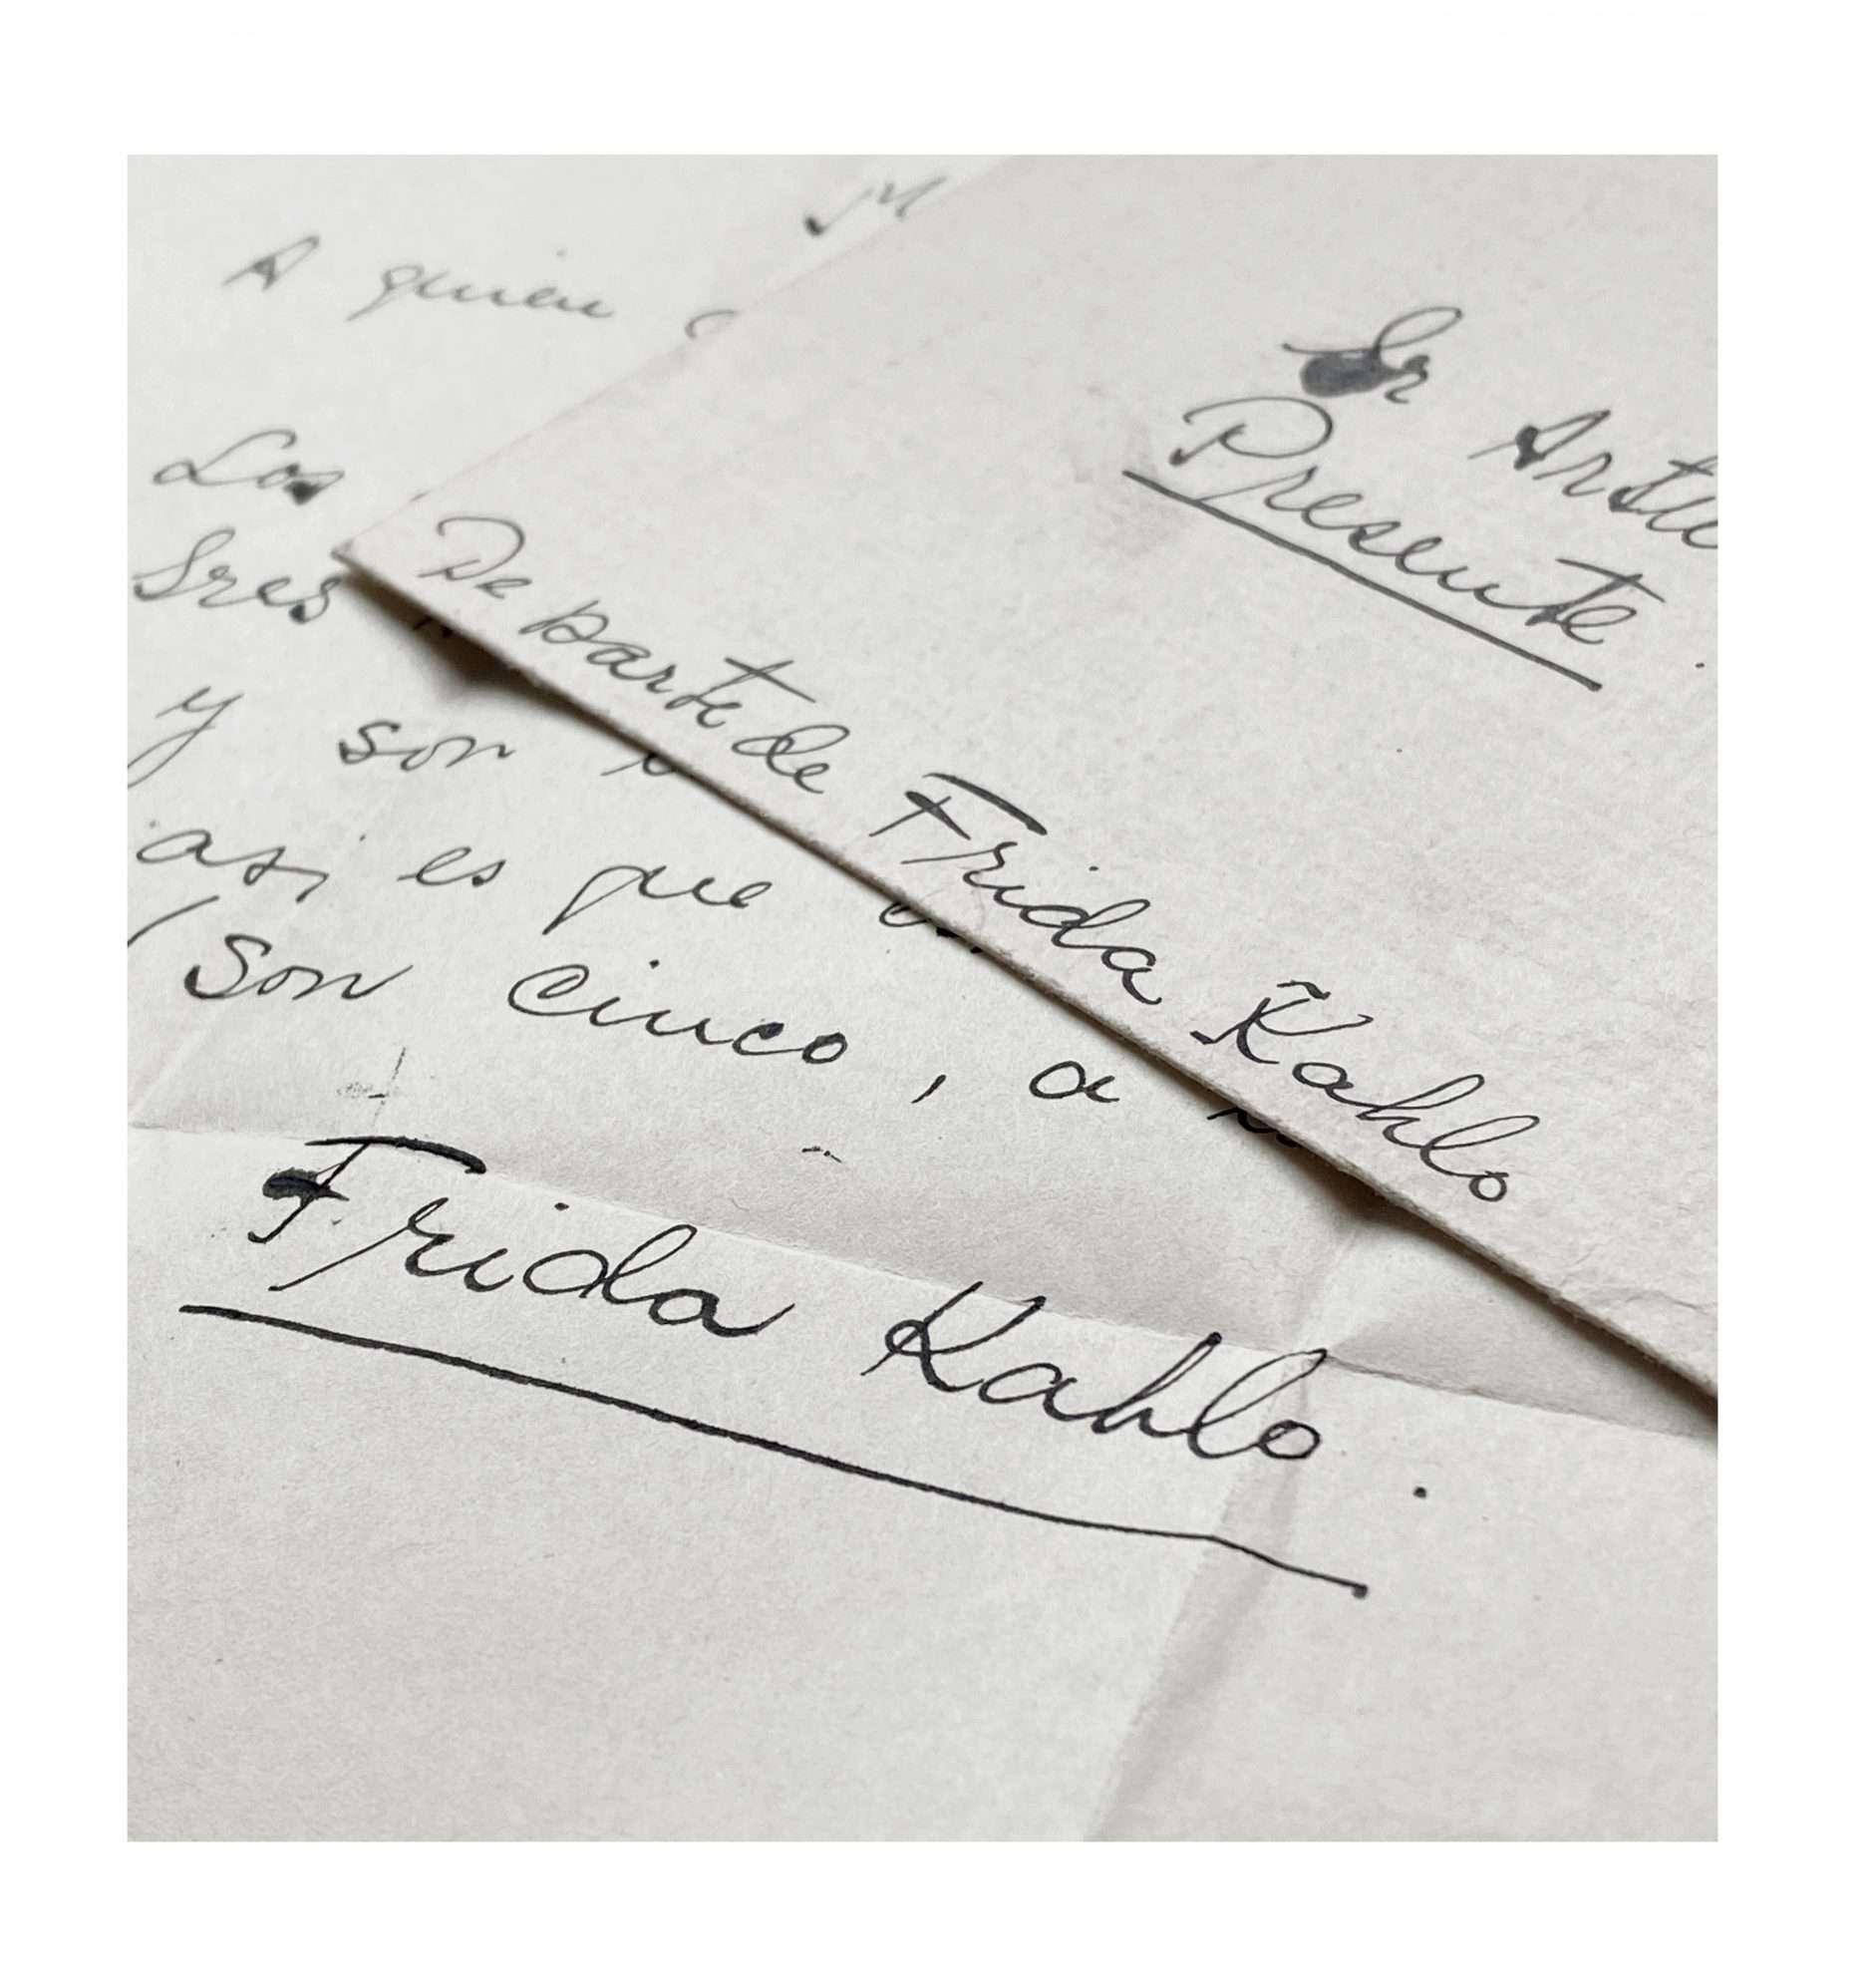 A quien
Los
Sres
y son
asi es que
(son cinco, a
Frida Kahlo.
Sr
Presente
De parte de Frida Kahlo